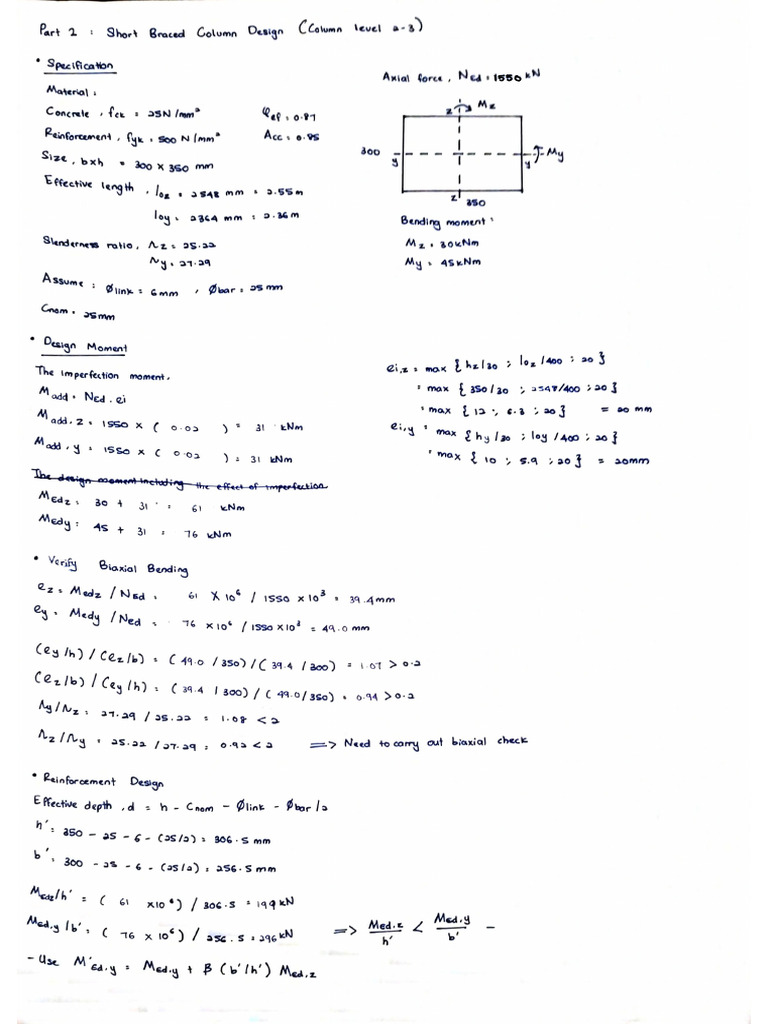 Part 2 : Short Braced Column Design (Column level 2-3)
• Specification
Axial force, NEd = 1550 kN
Material :
Concrete, fck = 25N/mm²
φef = 0.87
Reinforcement, fyk = 500 N/mm²
Acc = 0.85
Size, bxh = 300 x 350 mm
Effective length, loz = 2548 mm = 2.55m
loy = 2364 mm = 2.36m
z
Mz
300
y
y
My
z
350
Bending moment :
Mz = 30kNm
My = 45kNm
Slenderness ratio, λz = 25.22
λy = 27.29
Assume : Ølink = 6mm , Øbar = 25mm
Cnom = 25mm
• Design Moment
The imperfection moment,
Madd = NEd . ei
Madd,z = 1550 x ( 0.02 ) = 31 kNm
Madd,y = 1550 x ( 0.02 ) = 31 kNm
ei,z = max { hz/30 ; loz/400 ; 20 }
= max { 350/30 ; 2548/400 ; 20 }
= max { 12 ; 6.3 ; 20 } = 20 mm
ei,y = max { hy/30 ; loy/400 ; 20 }
= max { 10 ; 5.9 ; 20 } = 20mm
The design moment including the effect of imperfection
MEdz = 30 + 31 = 61 kNm
MEdy = 45 + 31 = 76 kNm
• Verify Biaxial Bending
ez = MEdz / NEd = 61 X 10⁶ / 1550 x 10³ = 39.4mm
ey = MEdy / NEd = 76 x10⁶ / 1550 x 10³ = 49.0 mm
(ey/h) / (ez/b) = ( 49.0 / 350) / ( 39.4 / 300) = 1.07 > 0.2
(ez/b) / (ey/h) = ( 39.4 / 300) / ( 49.0/350) = 0.94 > 0.2
λy/λz = 27.29 / 25.22 = 1.08 < 2
λz/λy = 25.22 / 27.29 = 0.92 < 2 => Need to carry out biaxial check
• Reinforcement Design
Effective depth, d = h - Cnom - Ølink - Øbar/2
h' = 350 - 25 - 6 - (25/2) = 306.5 mm
b' = 300 - 25 - 6 - (25/2) = 256.5 mm
MEdz/h' = ( 61 x10⁶) / 306.5 = 199 kN
MEd,y/b' = ( 76 x 10⁶) / 256.5 = 296 kN => MEd.z/h' < MEd.y/b' -
- Use M'Ed,y = MEd,y + β (b'/h') MEd,z